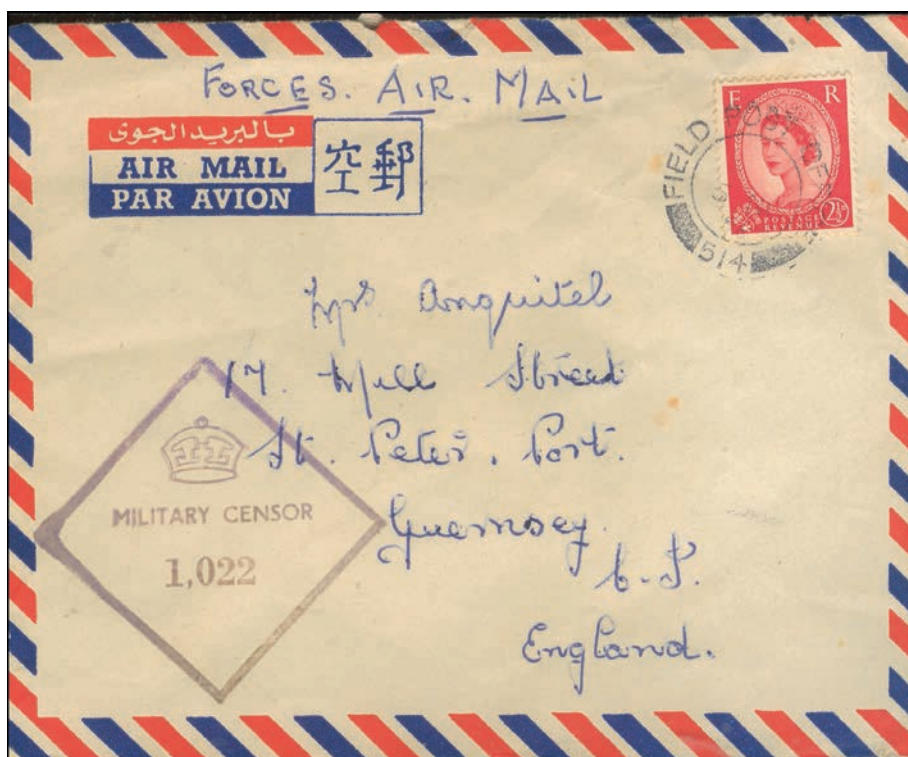 FORCES. AIR. MAIL
بالبريد الجوى
AIR MAIL
PAR AVION
空郵
E R
POSTAGE
REVENUE
2½
FIELD
514
Mrs Anquitel
17. Mill Street
St. Peter. Port.
Guernsey.
C.I.
England.
MILITARY CENSOR
1,022